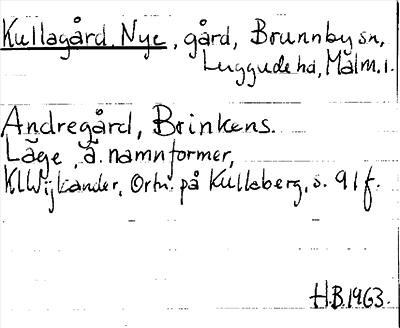 Kullagård, Nye, gård, Brunnby sn,
Luggude hd, Malm. l.
Andregård, Brinkens.
Läge, ä. namnformer,
Kl Wijkander, Ortn. på Kullaberg, s. 91 f.
H.B. 1963.